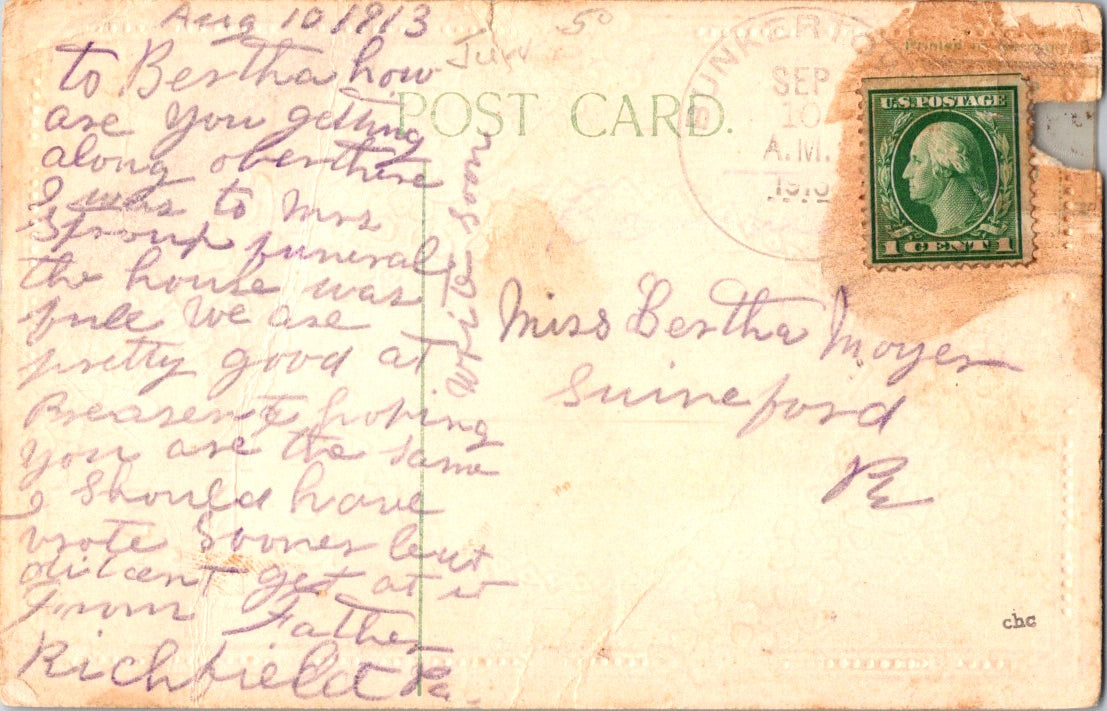 Aug 10 1913
to Bertha how
are you getting
along oberthere
I was to Mrs
Stroup funeral
the house was
full We are
pretty good at
Preasent hoping
you are the same
I Should have
wrote Sooner but
did cent get at it
From Father
Richfield Pa.
Write Soon
5⁰
POST CARD.
BUNKERTO
SEP
10
A.M.
191
Printed in Germany
U.S. POSTAGE
1 CENT 1
Miss Bertha Moyer
Swineford
Pa
chc